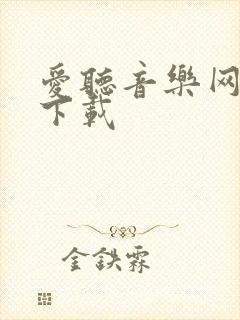 愛聽音樂网
下載
金鉄霖